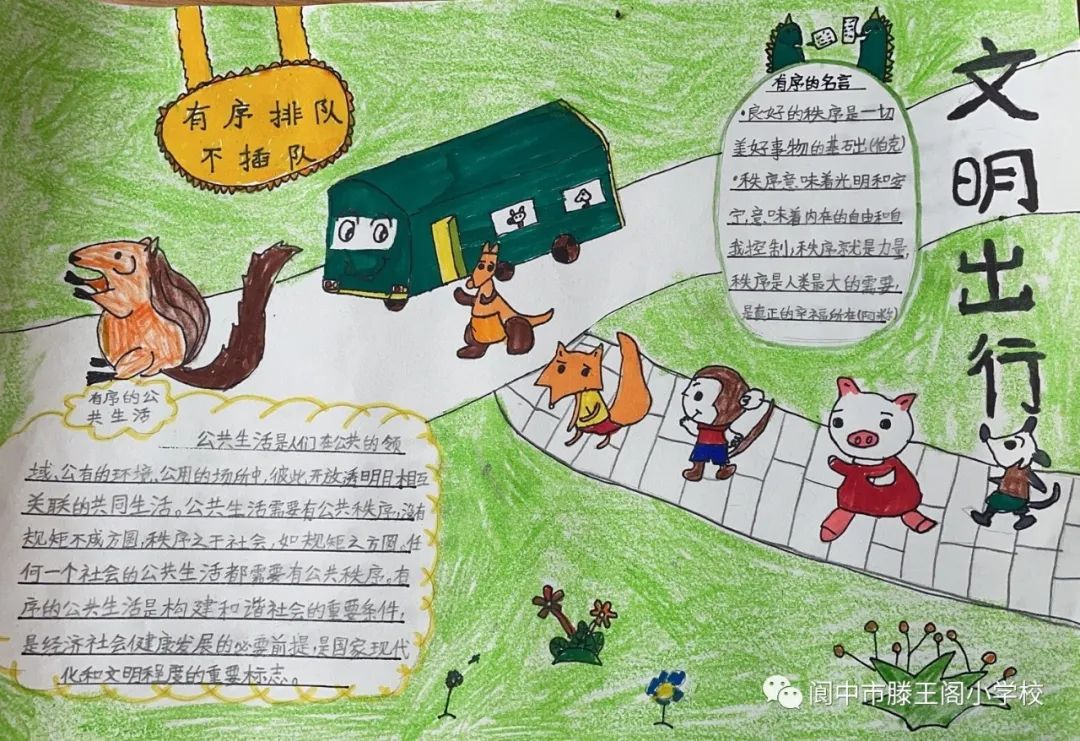 有序排队
不插队
有序的名言
•良好的秩序是一切
美好事物的基石出(伯克)
•秩序意味着光明和安
宁,意味着内在的自由和自
我控制,秩序就是力量,
秩序是人类最大的需要,
是真正的幸福所在(阿米)
文明出行
有序的公
共生活
公共生活是人们在公共的领
域、公有的环境、公用的场所中,彼此开放透明且相互
关联的共同生活。公共生活需要有公共秩序,没有
规矩不成方圆,秩序之于社会,如规矩之方圆。任
何一个社会的公共生活都需要有公共秩序。有
序的公共生活是构建和谐社会的重要条件,
是经济社会健康发展的必要前提,是国家现代
化和文明程度的重要标志。
阆中市滕王阁小学校